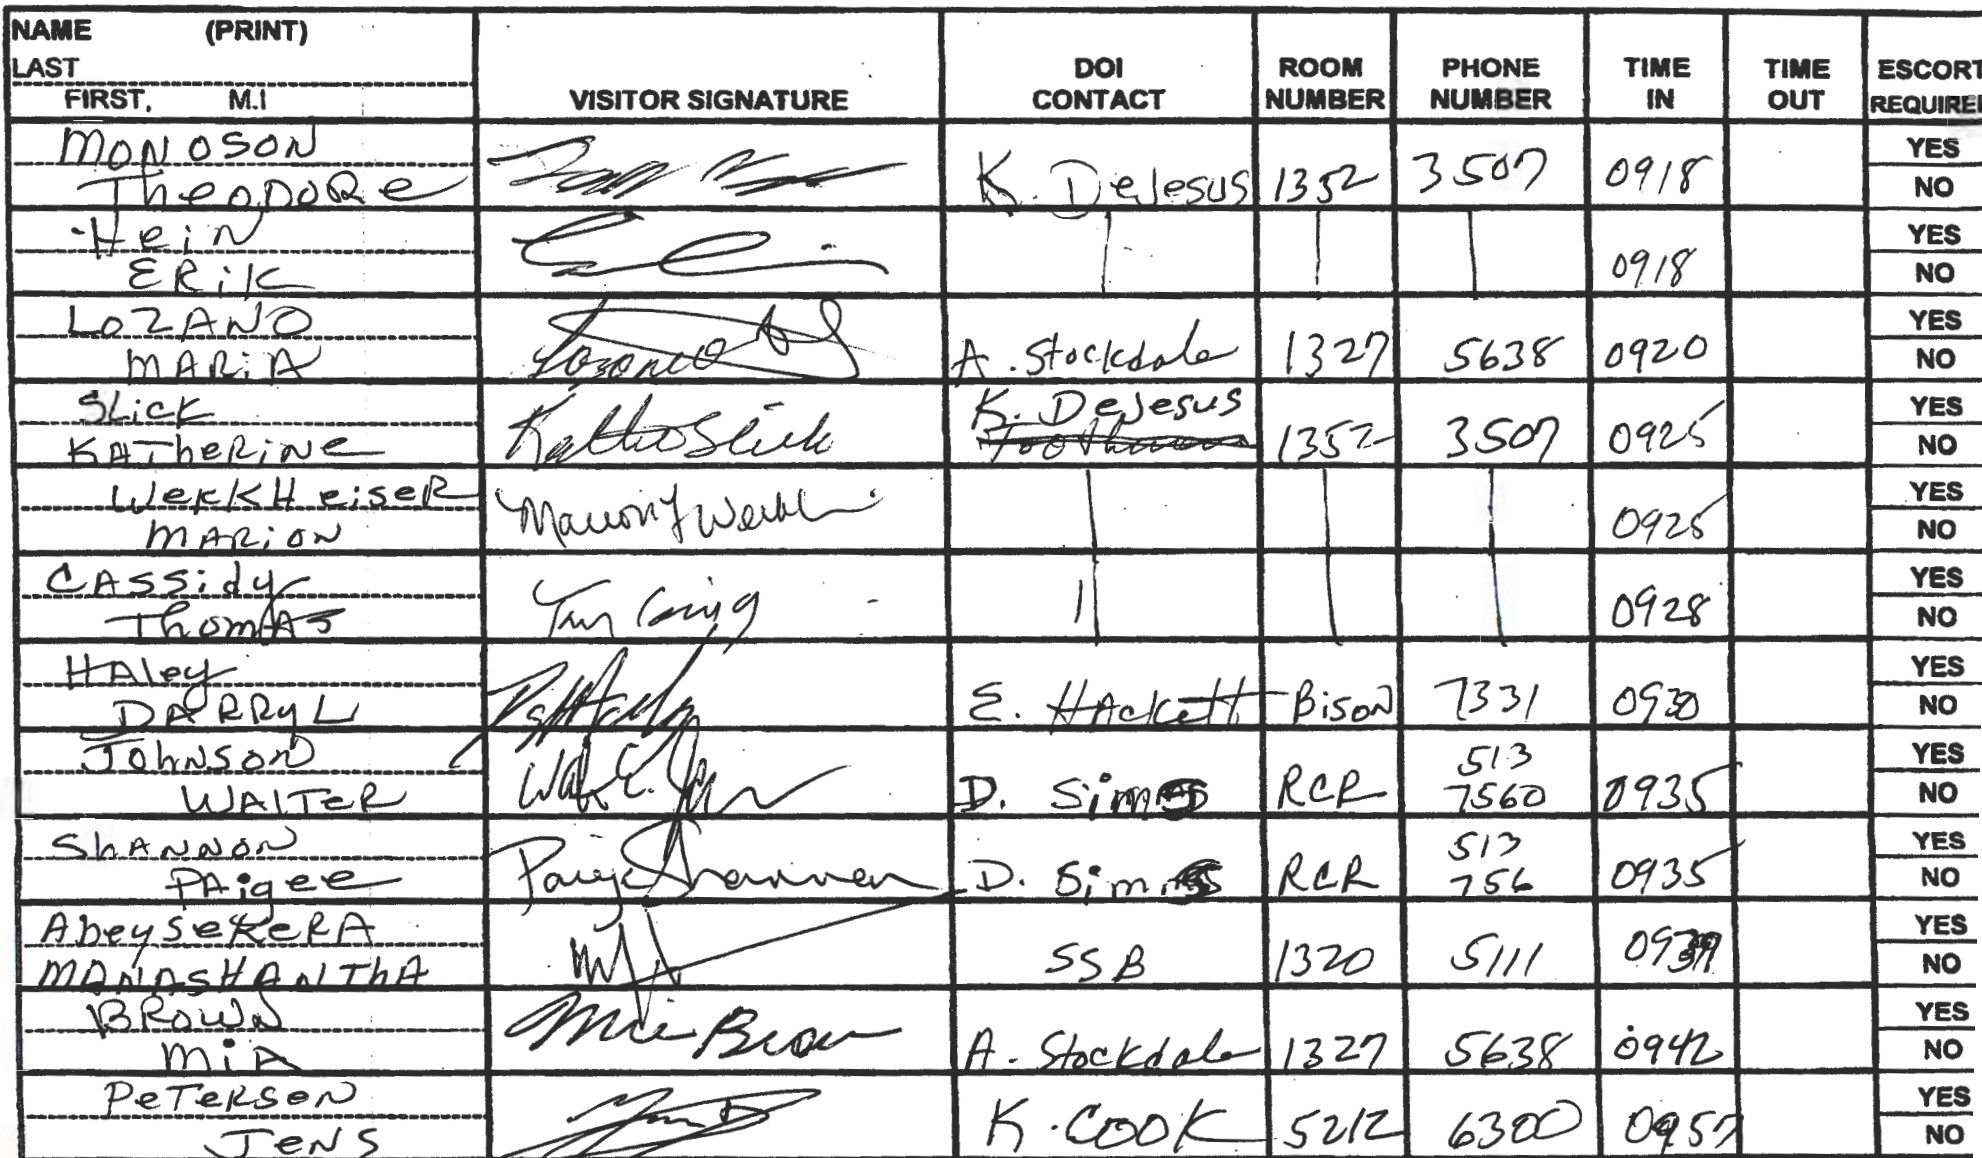 NAME (PRINT)
LAST
FIRST, M.I
VISITOR SIGNATURE
DOI CONTACT
ROOM NUMBER
PHONE NUMBER
TIME IN
TIME OUT
ESCORT REQUIRED
MONOSON
TheODORe K. DeJesus 1352 3507 0918 YES NO
Hein
ERiK 0918 YES NO
LOZANO
MARiA Lozano A. Stockdale 1327 5638 0920 YES NO
SLicK
KATheRiNe K. DeJesus 1352 3507 0925 YES NO
WeRKHeiseR
MARiON 0925 YES NO
CASSidy
ThomAS 0928 YES NO
HAley
DARRyL E. HAckett Bison 7331 0930 YES NO
JohNSON
WALTeR D. Simms RCR 513 7560 0935 YES NO
ShANNON
PAigee Paige Shannon D. Simms RCR 513 756 0935 YES NO
AbeyseKeRA
MANASHANThA SSB 1320 5111 YES NO
BROWN
MiA Mia Brown A. Stockdale 1327 5638 0942 YES NO
PeTeRSON
JeNS K. COOK 5212 6300 0957 YES NO